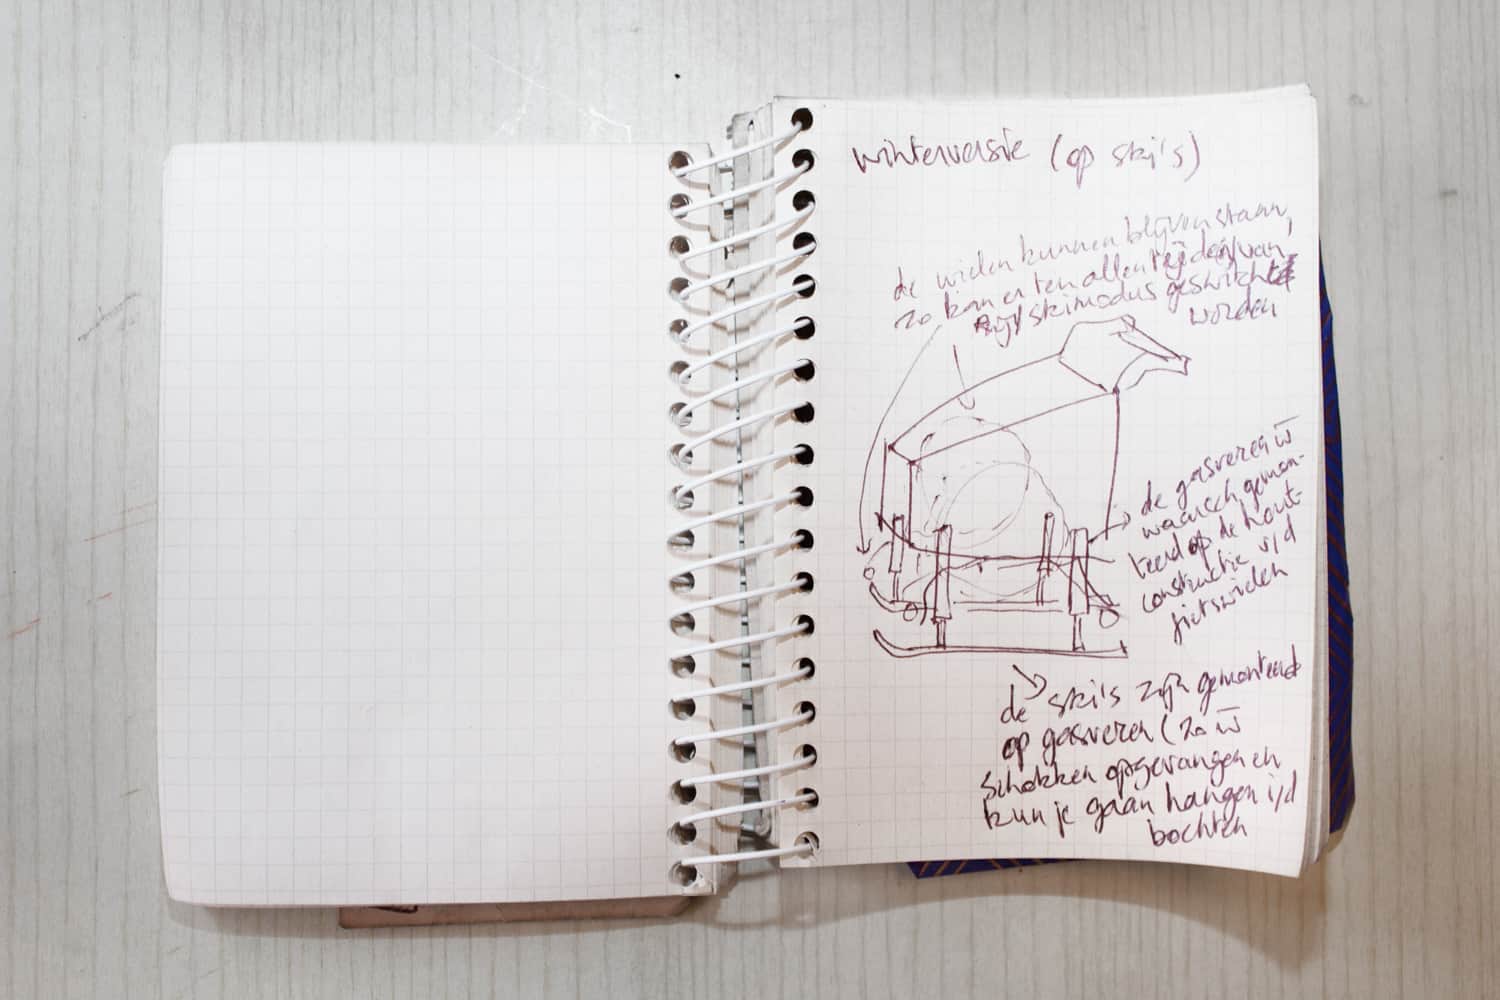 winterversie (op ski's)
de wielen kunnen blijven staan,
zo kan er ten allen tijde van
rij/skimodus geswitcht
worden
de gasveren w̄
waarsch. gemon-
teerd op de hout-
constructie v/d
fietswielen
de ski's zijn gemonteerd
op gasveren (zo w̄
schokken opgevangen en
kun je gaan hangen i/d
bochten